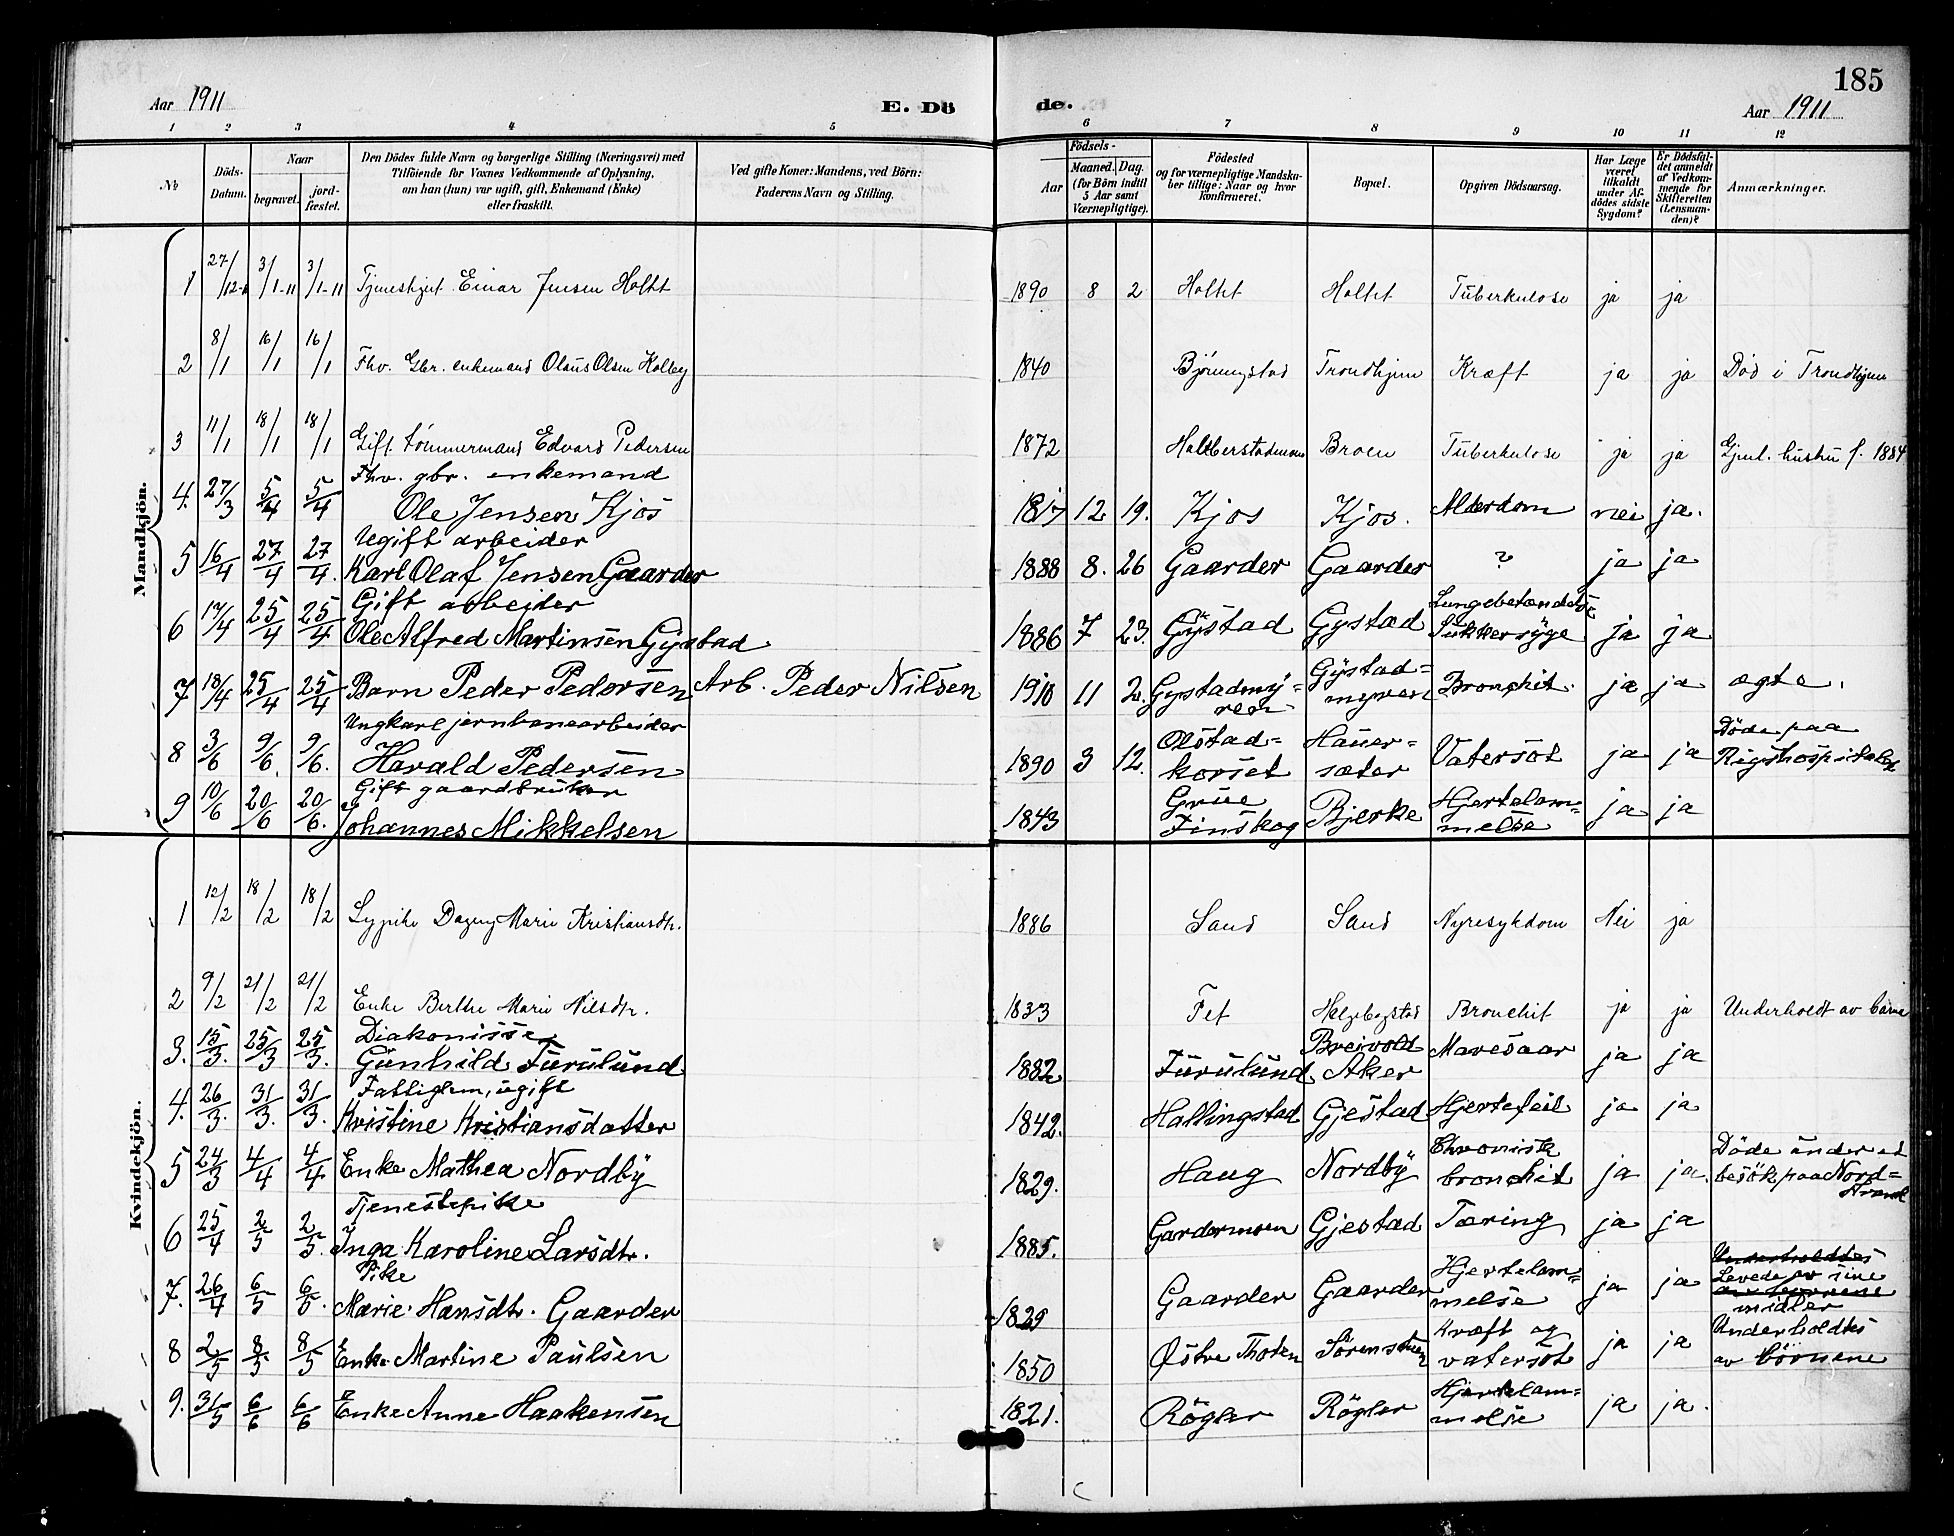 185
Aar 1911 E. Dö de. Aar 1911
1 2 3 4 5 6 7 8 9 10 11 12
№
Döds-Datum.
Naar
begravet.
jord-fæstet.
Den Dödes fulde Navn og borgerlige Stilling (Næringsvei) med
Tilföiende for Voxnes Vedkommende af Oplysning,
om han (hun) var ugift, gift, Enkemand (Enke)
eller fraskilt.
Ved gifte Koner: Mandens, ved Börn:
Faderens Navn og Stilling.
Födsels-
Aar
Maaned. Dag.
(for Börn indtil
5 Aar samt
Værnepligtige).
Födested
og for værnepligtige Mandskaber tillige: Naar og hvor
Konfirmeret.
Bopæl.
Opgiven Dödsaarsag.
Har Læge
været
tilkaldt
under Afdödes sidste
Sygdom?
Er Dödsfaldet anmeldt
af Vedkommende for
Skifteretten
(Lensmanden)?
Anmærkninger.
Mandkjön.
1 27/12-10 3/1-11 3/1-11 Tjenestgut Einar Jensen Holtet 1890 8 2 Holtet Holtet Tüberkulose ja ja
2 8/1 16/1 16/1 Fhv. Gbr. enkemand Olaus Olsen Kolbey 1840 Björningstad Trondhjem Kræft ja ja Död i Trondhjem
3 11/1 18/1 18/1 Gift tömmermand Edvard Pedersen 1872 Broen Tüberkulose ja ja
Fhv. gbr. enkemand
4. 27/3 5/4 5/4 Ole Jensen Kjos 1817 12 19. Kjos Kjos. Alderdom nei ja.
Ugift arbeider
5 16/4 27/4 27/4. Karl Olaf Jensen Gaarder 1888 8. 26 Gaarder Gaarder ? ja ja
Gift arbeider
6 17/4 25/4 25/4 Ole Alfred Martinsen Gystad 1886 7 23. Gystad Gystad Lungebetændelse Sukkersyge ja ja
7 18/4 25/4 25/4 Barn Peder Pedersen Arb. Peder Nilsen 1910 11 2. Gystadmyren Gystadmyren Bronchit. ja ja ægte.
Ungkarl jernbanearbeider
8 3/6 9/6. 9/6. Harald Pedersen 1890 3 12. Olstad=korset Hauer=sæter Vatersot ja ja Döde paa Rigshospitalet
Gift gaardbruker
9 10/6 20/6 20/6. Johannes Mikkelsen 1843 Grue Finskog Bjerke Hjertelam=melse ja ja
Kvindekjön.
1 12/2 18/2 18/2 Dagny Marie Kristiansdtr. 1886 Sand Sand Nyresykdom Nei ja
2 9/2 21/2 21/2 Enke Berthe Marie Nilsdtr. 1833 Fet Helgebostad Bronchit ja ja Underholdt av börne
Diakonisse
3. 15/3. 25/3 25/3. Gunhild Furulund 1882 Furulund Breivold Aker Mavesaar ja ja
Fattiglem, ugift
4. 26/3. 31/3. 31/3. Kristine Kristiansdatter 1842. Hallingstad Gjestad Hjertefeil ja ja
5 24/3 4/4 4/4 Enke Mathea Nordby 1829. Haug Nordby Chronisk bronchit ja ja. Döde under et besök paa Nord=strand
Tjenestepike
6 25/4 2/5 2/5. Inga Karoline Larsdtr. 1885. Gardermoen Gjestad Tæring ja ja
Pike
7. 26/4 6/5 6/5. Marie Hansdtr. Gaarder 1829 Gaarder Gaarder Hjertelam=melse ja ja Underholdtes Levede av sine av börnene midler
8 2/5 8/5 8/5 Enke Martine Paulsen 1850 Østre Thoten Sörensteen Kræft og vatersot ja ja Underholdtes av börnene
9. 31/5 6/6 6/6 Enke Anne Haakensen 1821. Rögler Rögler Hjertelam=melse ja ja.